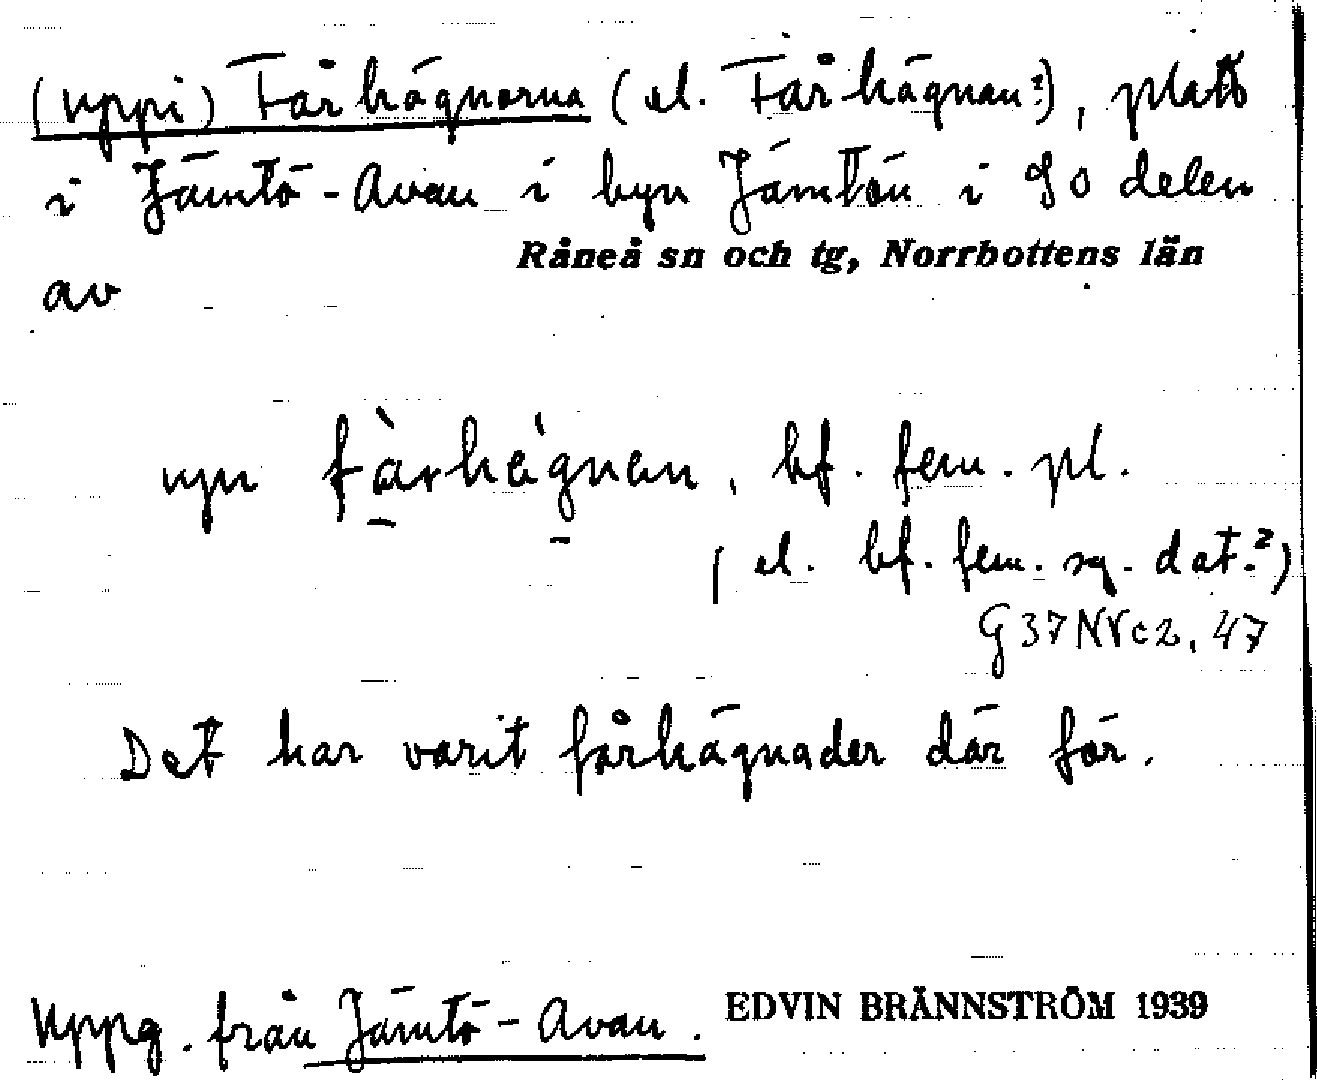 (uppi) Fårhägnorna (el. Fårhägnan?), plats
i Jämtö-Avan i byn Jämtön i SO delen
Råneå sn och tg, Norrbottens län
av
upn fàrhègnan, bf. fem. pl.
(el. bf. fem. sg. dat.?)
G37NVc2, 47
Det har varit fårhägnader där för.
Uppg. från Jämtö-Avan.
EDVIN BRÄNNSTRÖM 1939